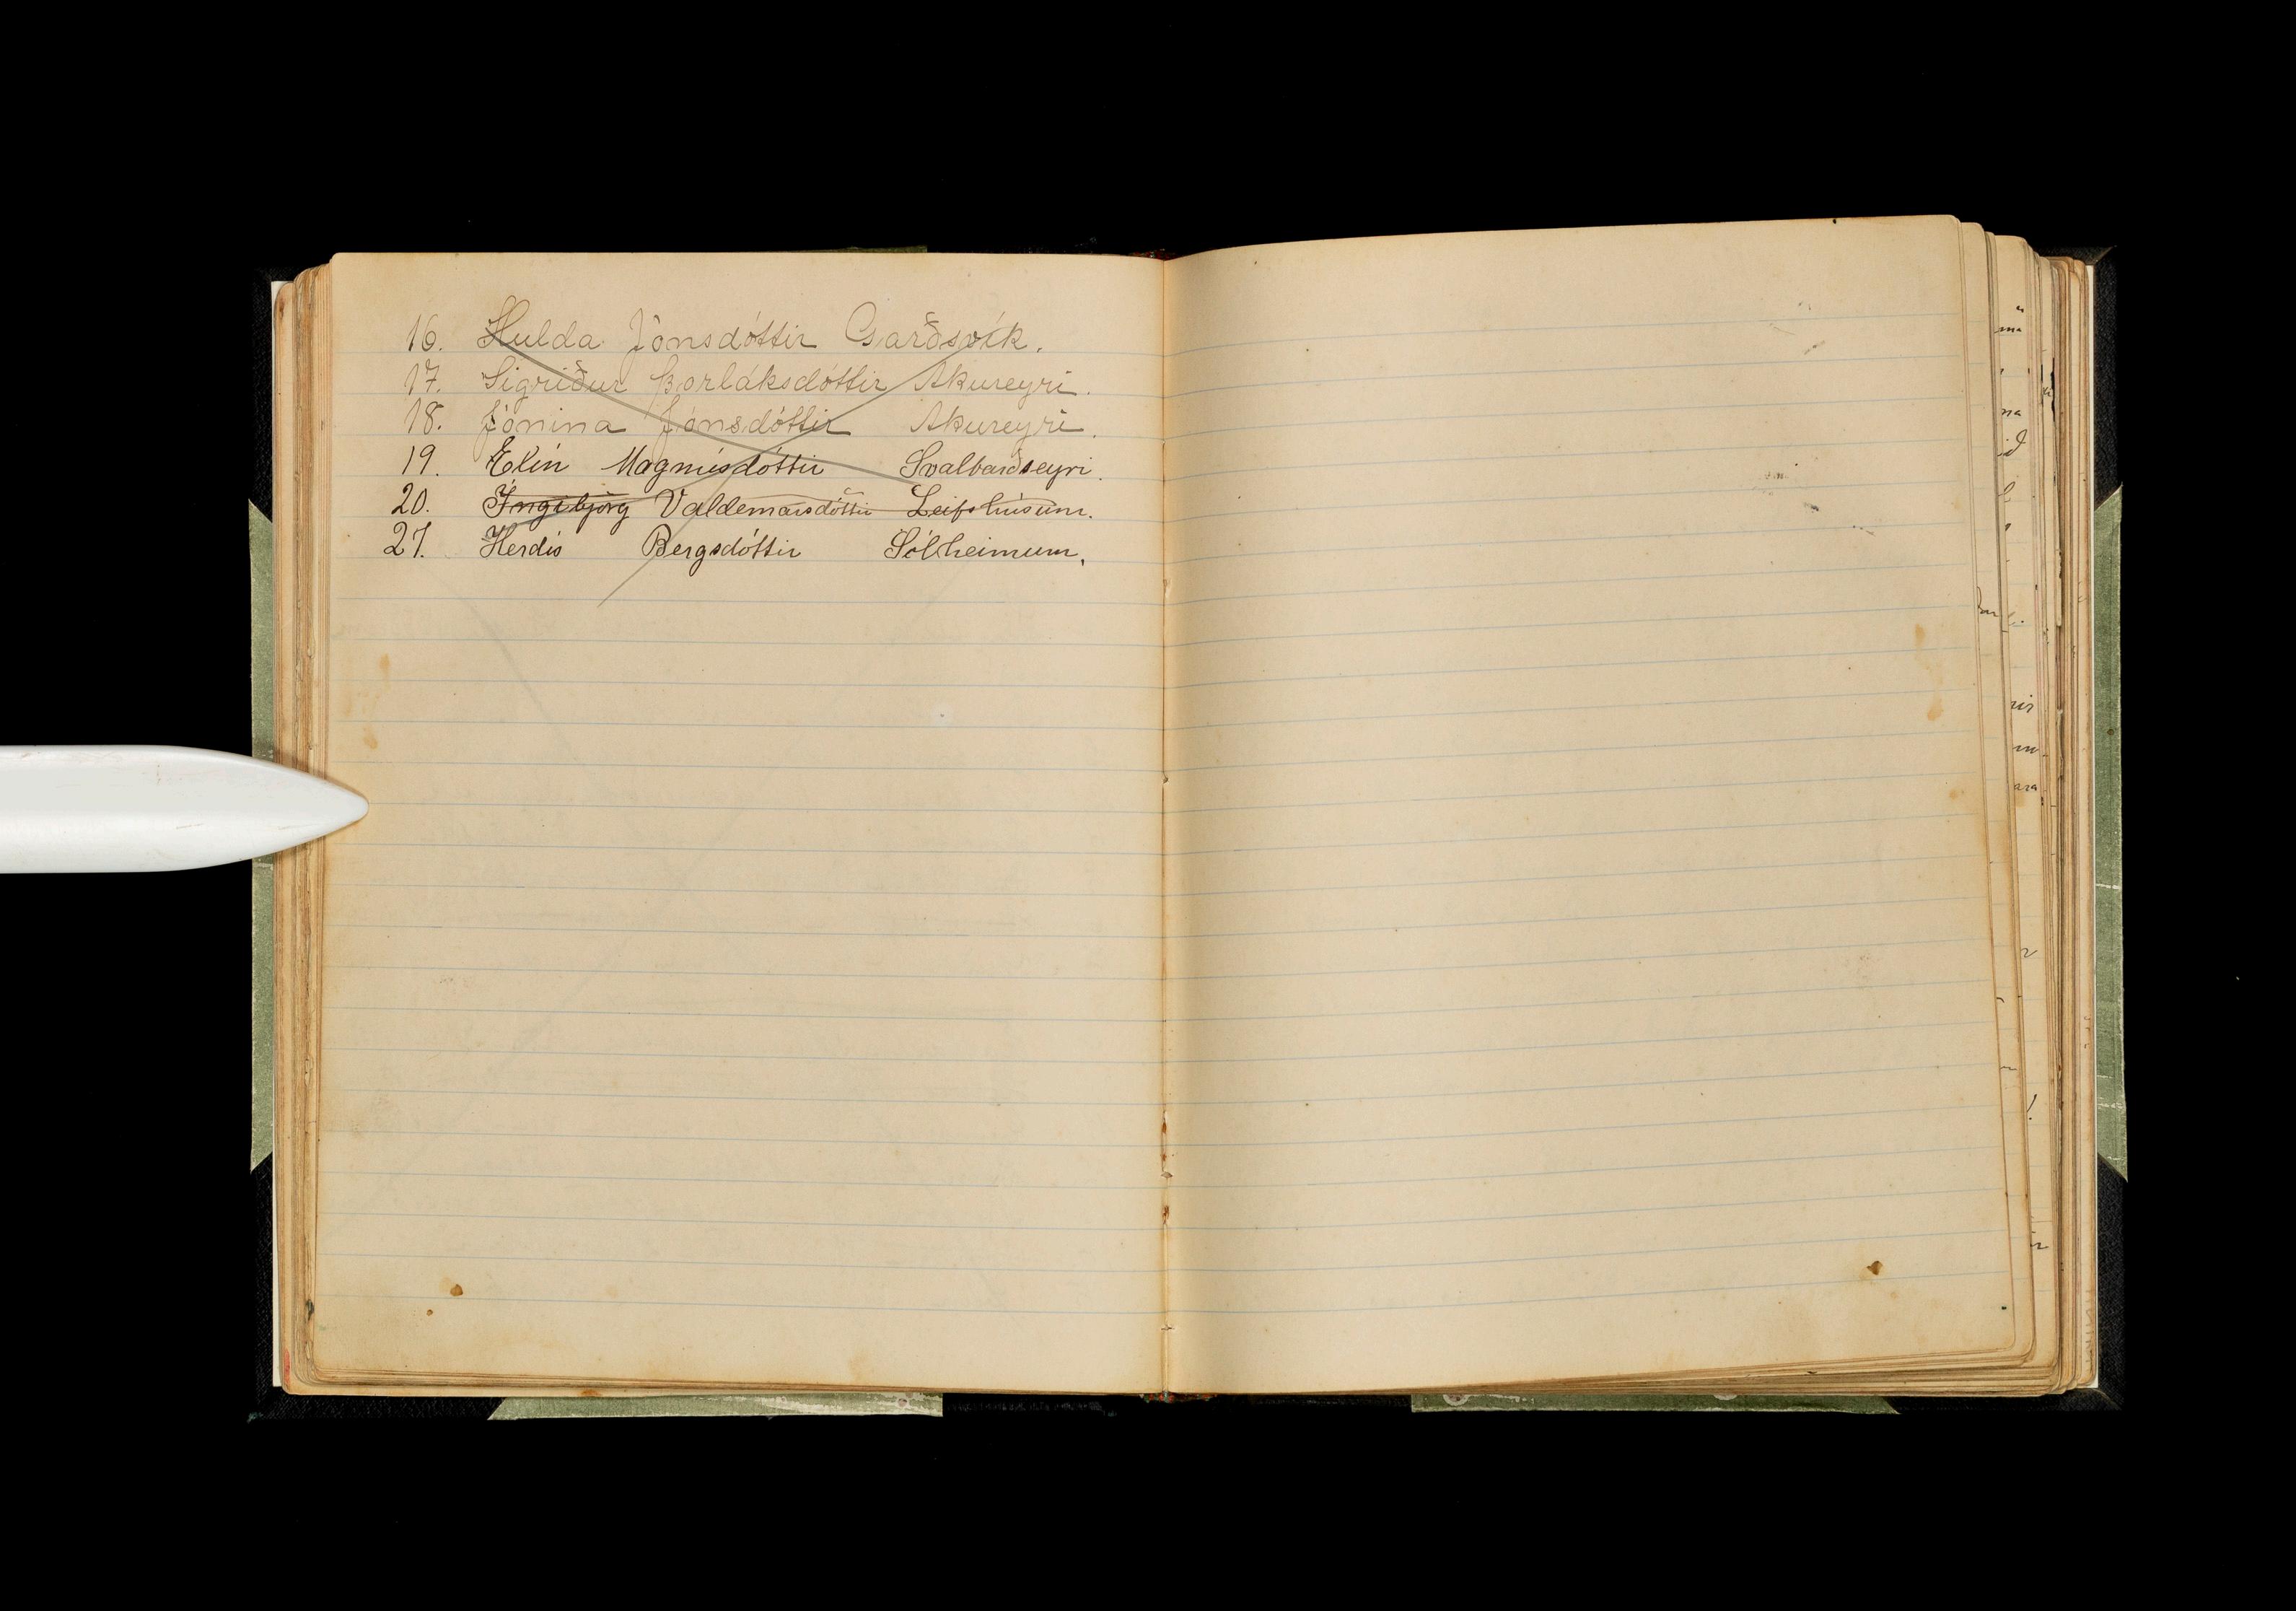 16. Hulda Jónsdóttir Garðsvík.
17. Sigríður Þorláksdóttir Akureyri.
18. Jónína Jónsdóttir Akureyri.
19. Elín Magnúsdóttir Svalbarðseyri.
20. Ingibjörg Valdemarsdóttir Leifshúsum.
21. Herdís Bergsdóttir Sólheimum.